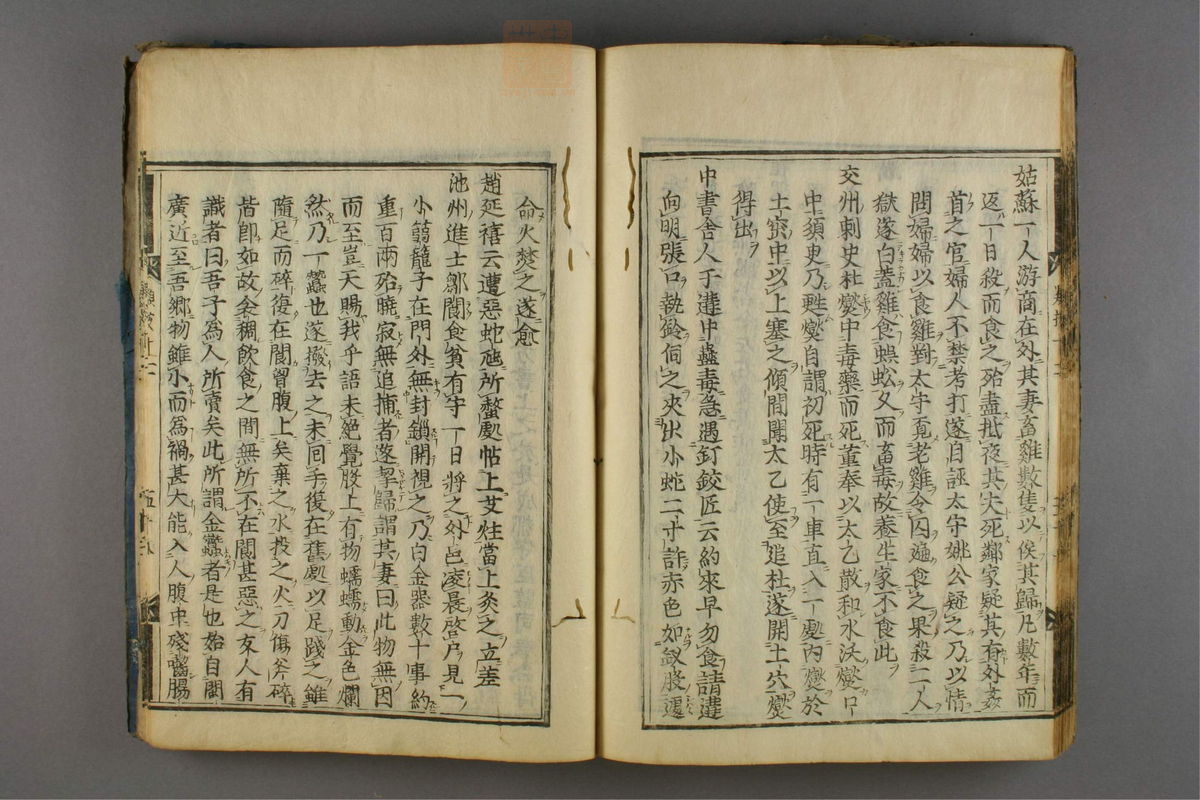 姑蘇一人游商在外其妻畜雞數隻以俟其歸凡數年而
返一日殺而食之殆盡抵夜其夫死鄰家疑其有外姦
首之官婦人不禁考打遂自誣太守姚公疑之乃以情
問婦婦以食雞對太守覓老雞令囚遍食之果殺二人
獄遂白蓋雞食蜈蚣久而畜毒故養生家不食此
交州刺史杜燮中毒藥而死董奉以太乙散和水沃燮口
中須臾乃甦燮自謂初死時有一車直入一處內燮於
土窟中以上塞之傾間聞太乙使至追杜遂開土穴燮
得出
中書舍人于遘中蠱毒急遇釘鉸匠云約來早勿食請遘
向明張口執鈴伺之夾出小蛇二寸許赤色如釵股遽
命火焚之遂愈
趙延禧云遭惡蛇虺所螫處帖上艾炷當上灸之立差
池州進士鄒閬食貧有守一日將之外邑凌晨啓戶見一
小蒻籠子在門外無封鎖開視之乃白金器數十事約
重百兩殆曉寂無追捕者遂挈歸謂其妻曰此物無因
而至豈天賜我乎語未絕覺股上有物蠕蠕動金色爛
然乃一蠶也遂撥去之未囘手復在舊處以足踐之雖
隨足而碎復在閬胷腹上矣棄之水投之火刀傷斧碎
皆卽如故衾稠飲食之間無所不在閬甚惡之友人有
識者曰吾子爲人所賣矣此所謂金蠶者是也始自閩
廣近至吾鄉物雖小而爲禍甚大能入人腹中殘嚙腸